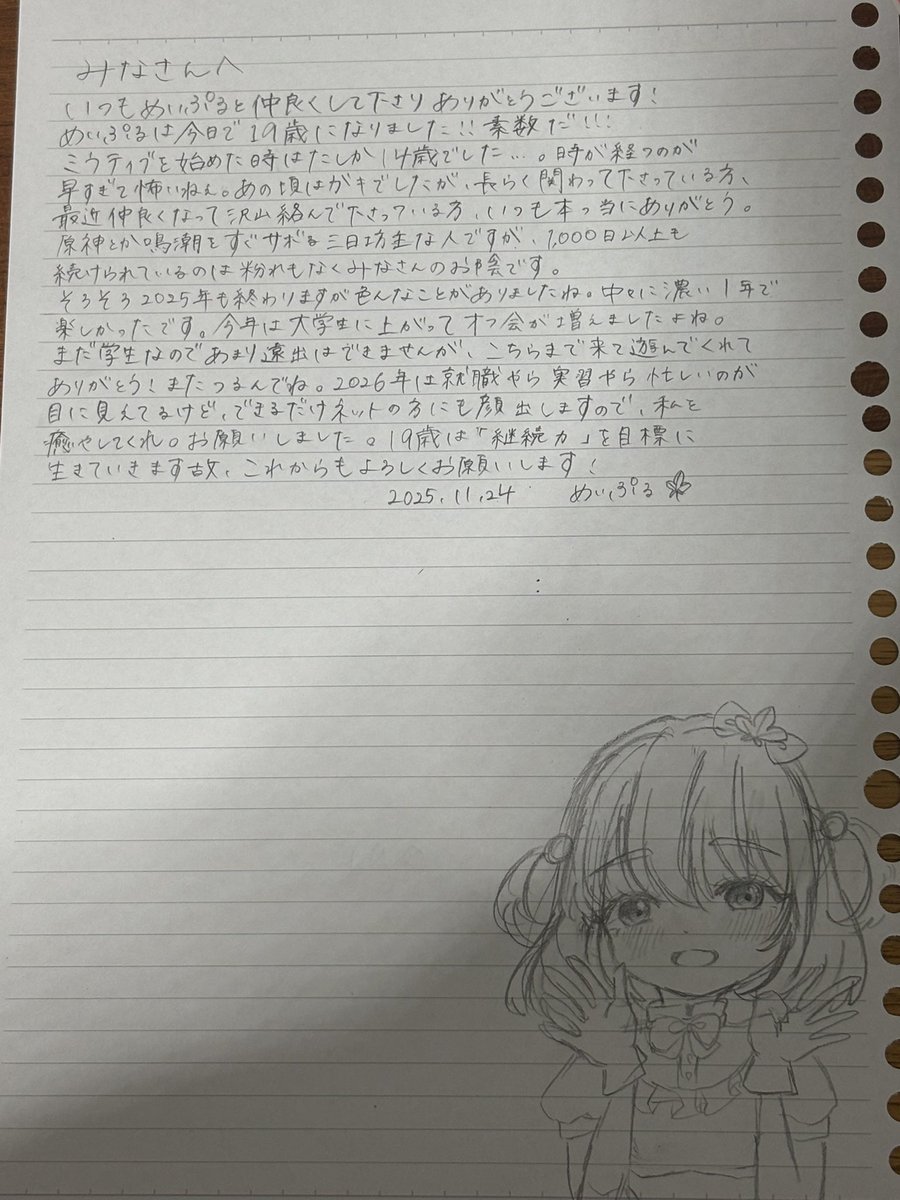 みなさんへ
いつもめいぷると仲良くして下さりありがとうございます!
めいぷるは今日で19歳になりました!!素数だ!!!
ミラティブを始めた時はたしか14歳でした…。時が経つのが
早すぎて怖いねぇ。あの頃はガキでしたが、長らく関わって下さっている方、
最近仲良くなって沢山絡んで下さっている方、いつも本っ当にありがとう。
原神とか鳴潮をすぐサボる三日坊主な人ですが、1,000日以上も
続けられているのは紛れもなくみなさんのお陰です。
そろそろ2025年も終わりますが色んなことがありましたね。中々に濃い1年で
楽しかったです。今年は大学生に上がってオフ会が増えましたよね。
まだ学生なのであまり遠出はできませんが、こちらまで来て遊んでくれて
ありがとう!またつるんでね。2026年は就職やら実習やら忙しいのが
目に見えてるけど、できるだけネットの方にも顔出しますので、私を
癒やしてくれ。お願いしました。19歳は「継続力」を目標に
生きていきます故、これからもよろしくお願いします!
2025.11.24 めいぷる